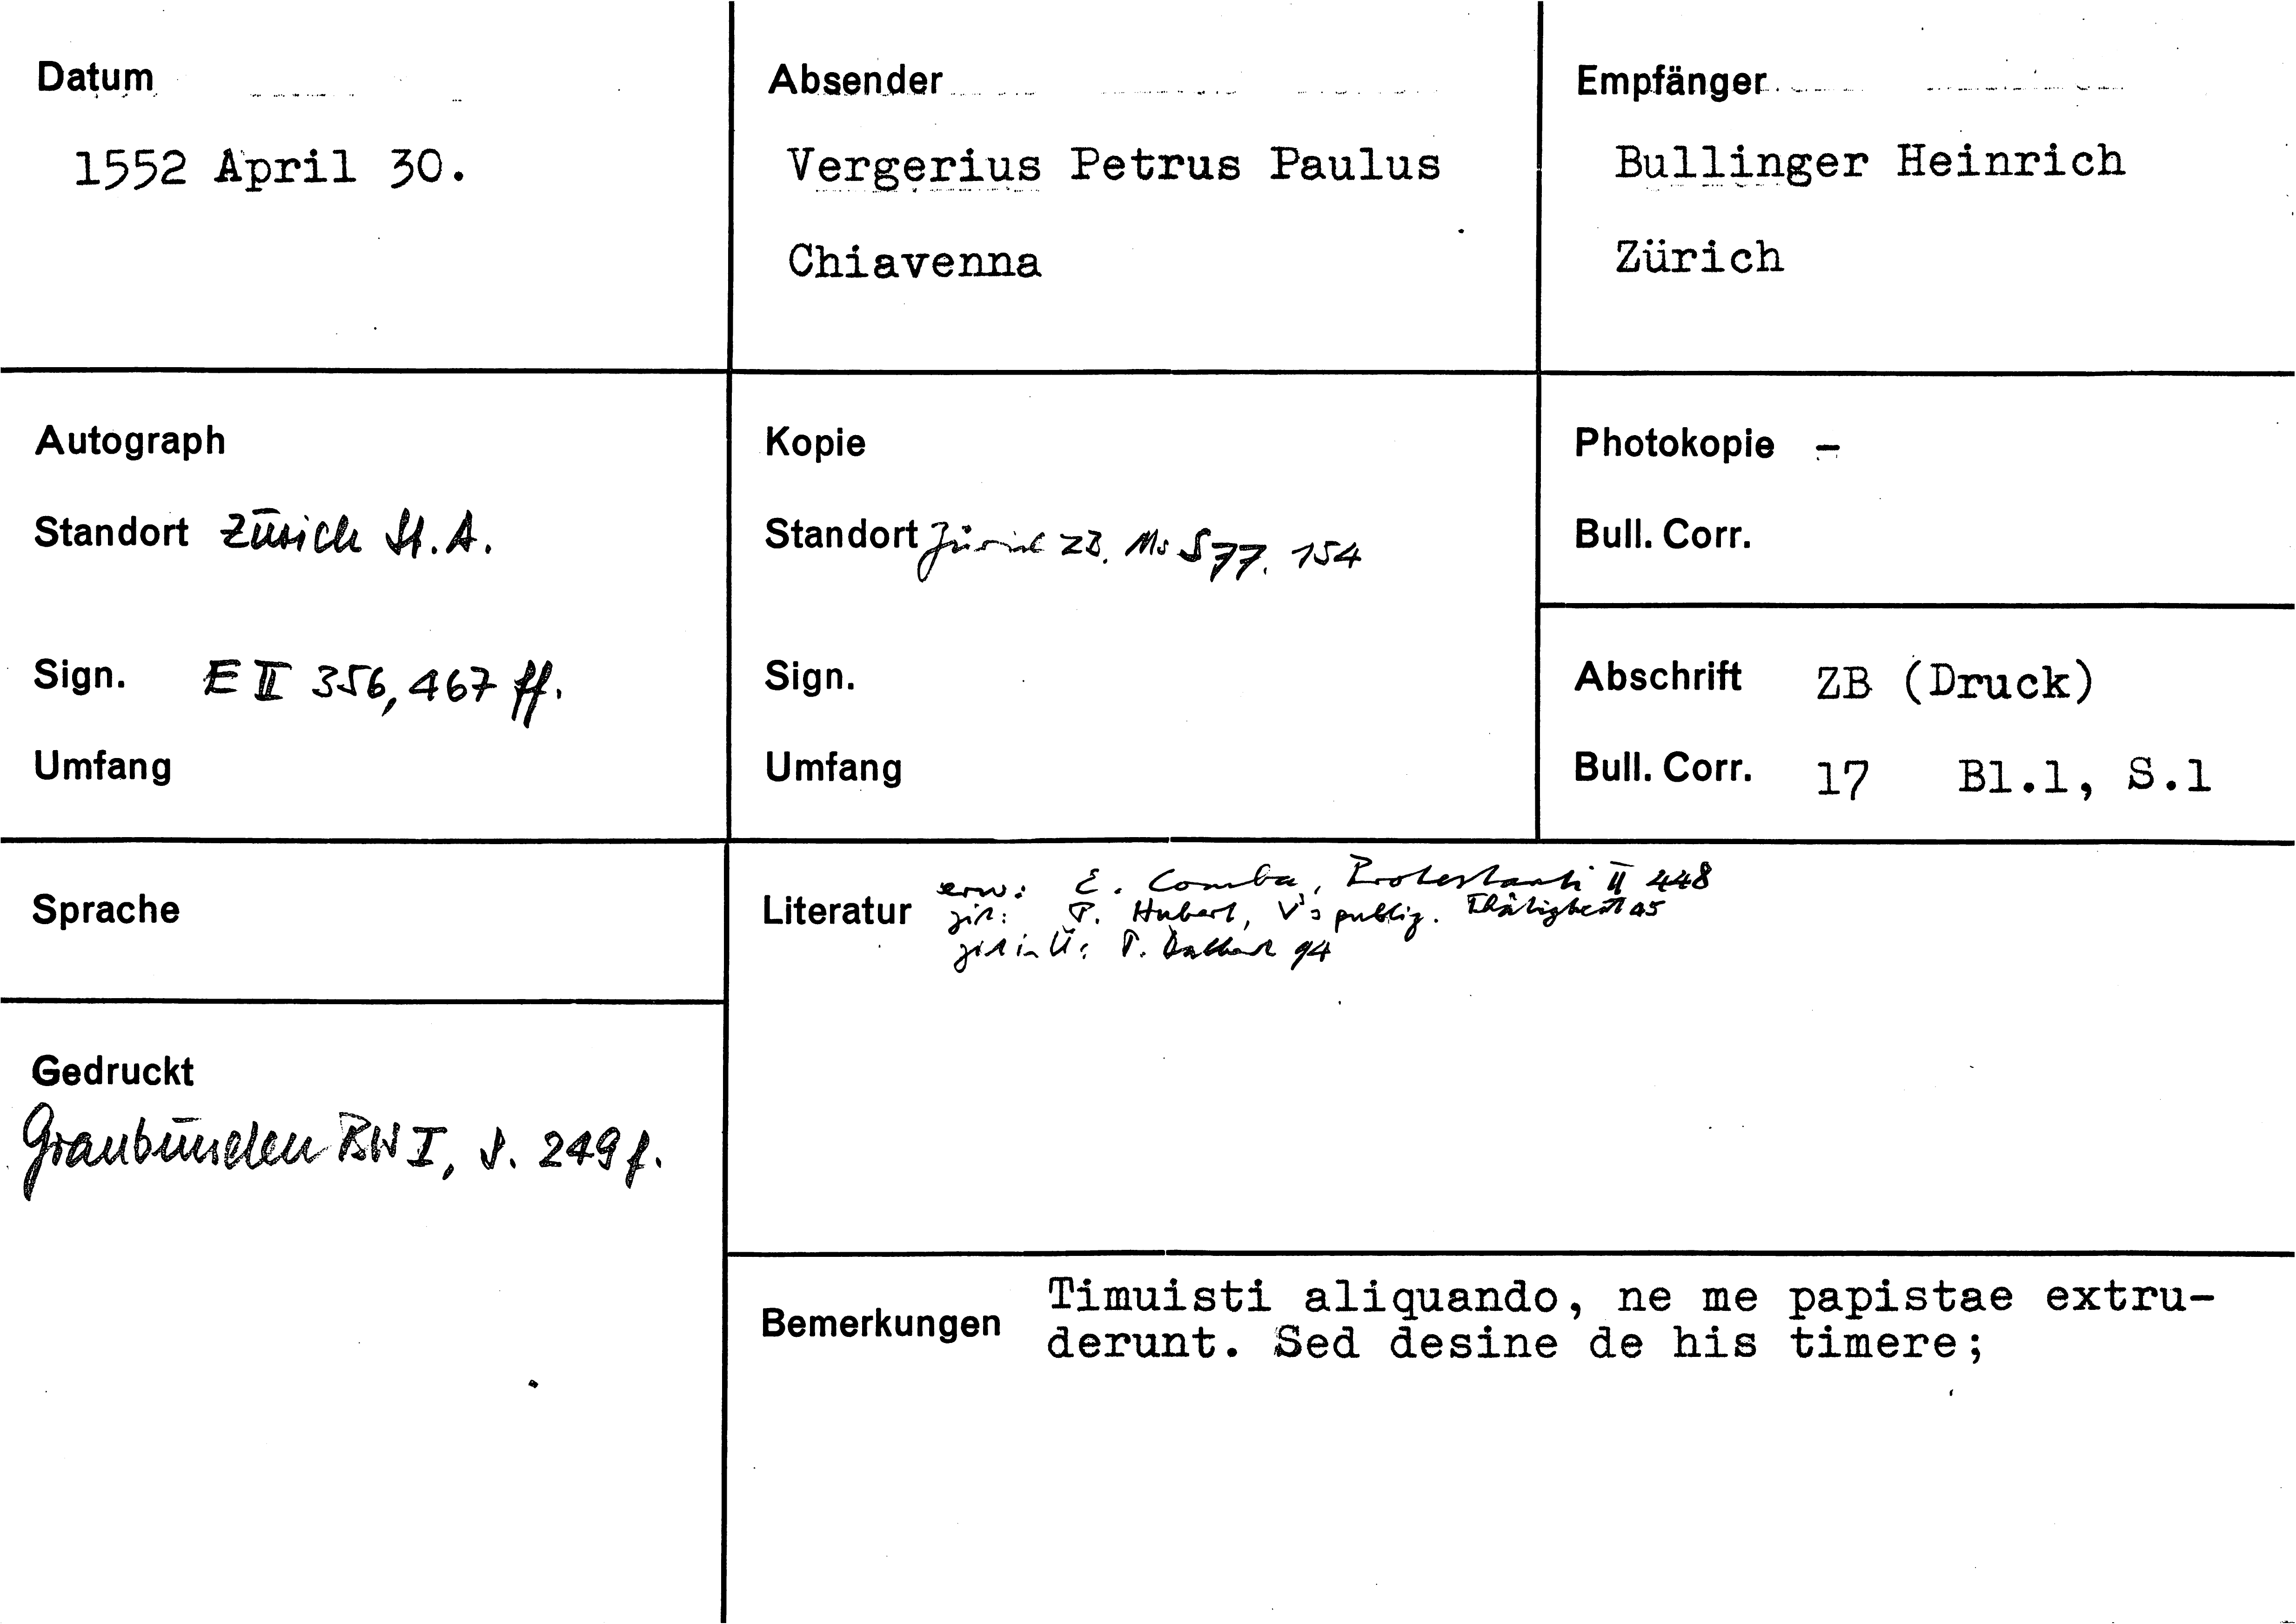 Datum
1552 April 30.
Absender
Vergerius Petrus Paulus
Chiavenna
Empfänger
Bullinger Heinrich
Zürich
Autograph
Standort Zürich St. A.
Sign. E II 356, 467 ff.
Umfang
Kopie
Standort Zürich ZB. Ms S 77. 154
Sign.
Umfang
Photokopie –
Bull. Corr.
Abschrift ZB (Druck)
Bull. Corr. 17 Bl.1, S.1
Sprache
Gedruckt
Graubünden BW I, S. 249 f.
Literatur
erw: E. Comba, Protestanti II 448
zit: P. Hubert, V's publiz. Thätigkeit
zit in Ü: P. 94
Bemerkungen
Timuisti aliquando, ne me papistae extru-
derunt. Sed desine de his timere;